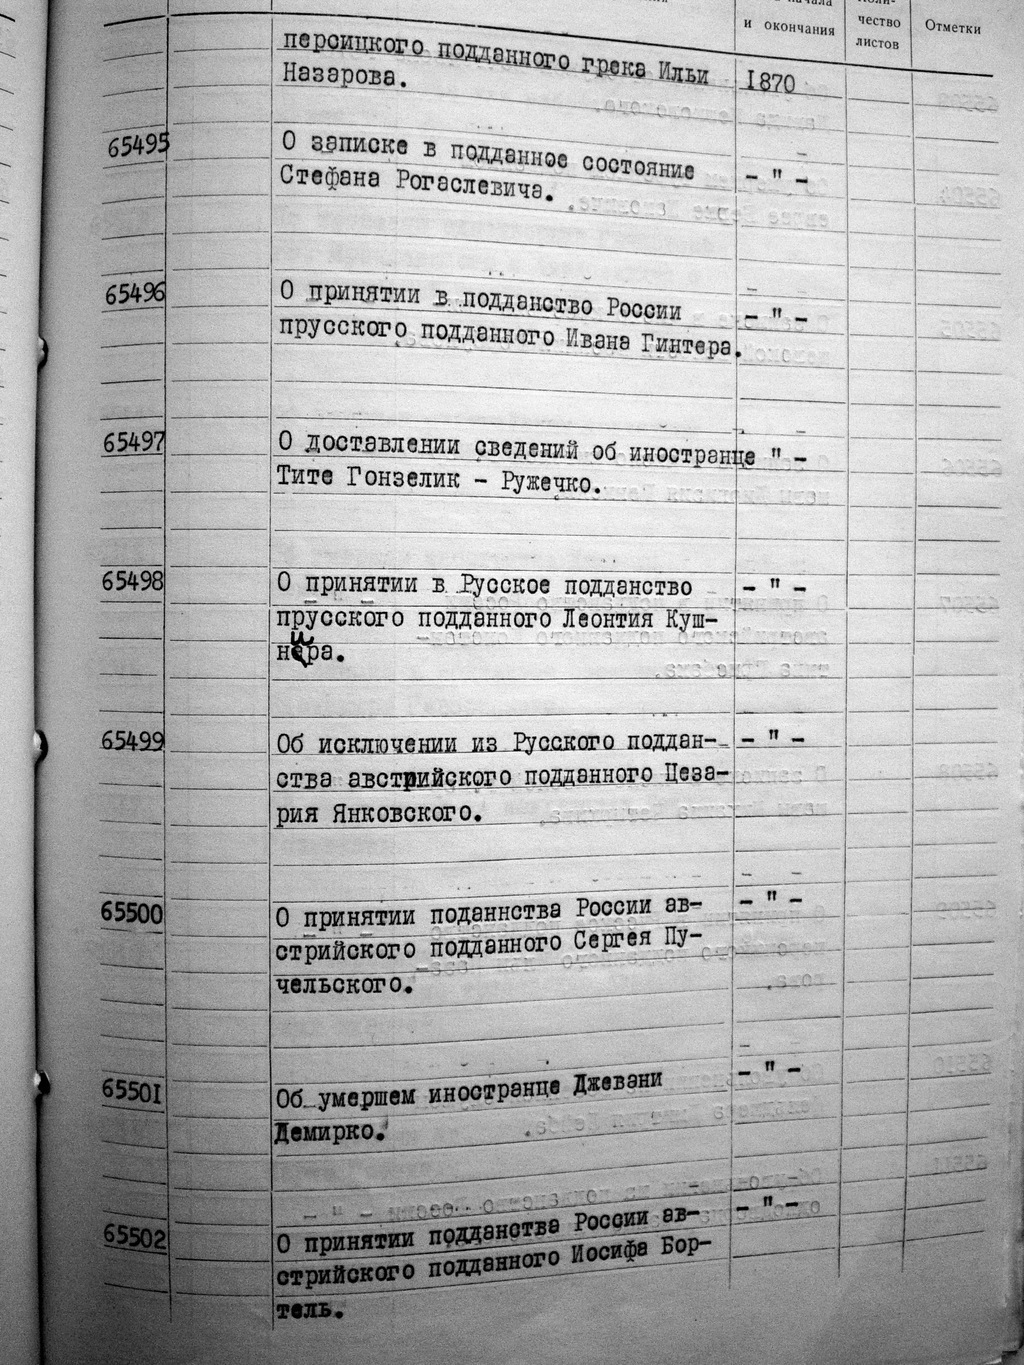 и окончания
чество
листов
Отметки
персицкого подданного грека Ильи
Назарова.
1870
65495
О записке в подданное состояние
Стефана Рогаслевича.
- " -
65496
О принятии в подданство России
прусского подданного Ивана Гинтера.
- " -
65497
О доставлении сведений об иностранце " -
Тите Гонзелик - Ружечко.
65498
О принятии в Русское подданство
прусского подданного Леонтия Куш-
нира.
- " -
65499
Об исключении из Русского поддан-
ства австрийского подданного Цеза-
рия Янковского.
- " -
65500
О принятии поданнства России ав-
стрийского подданного Сергея Пу-
чельского.
- " -
65501
Об умершем иностранце Джевани
Демирко.
- " -
65502
О принятии подданства России ав-
стрийского подданного Иосифа Бор-
тель.
- " -